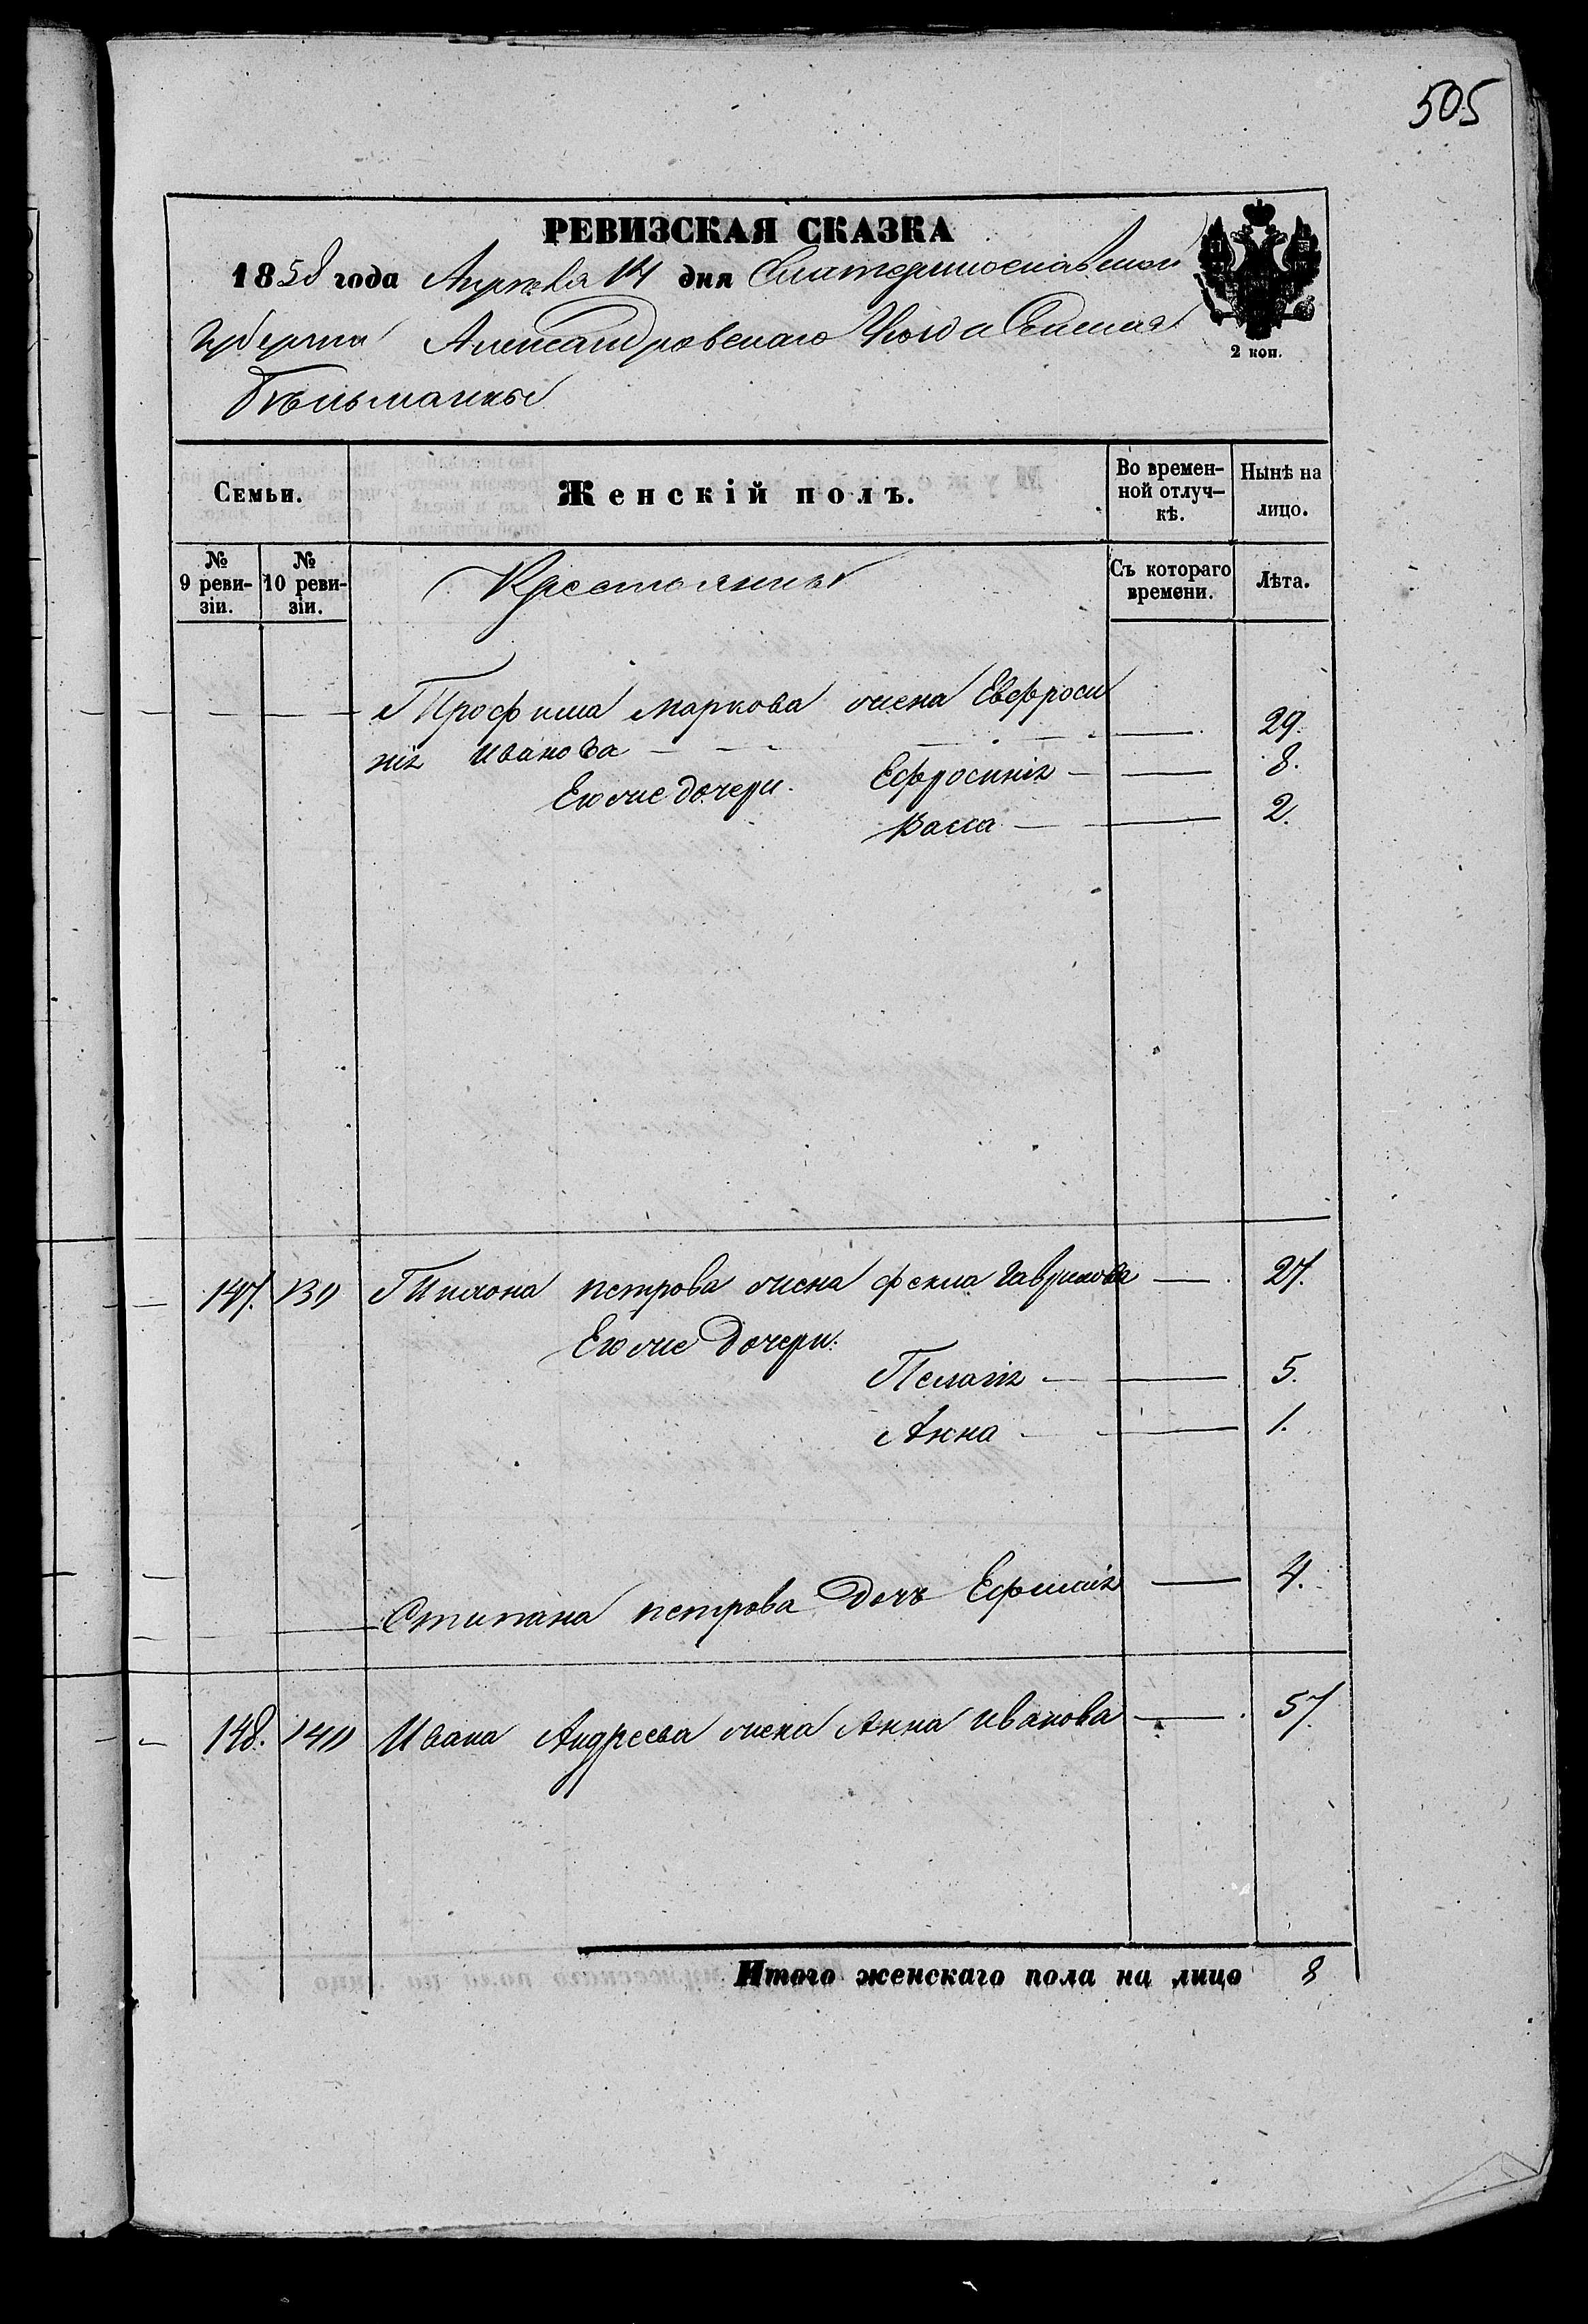 505
РЕВИЗСКАЯ СКАЗКА
1858 года Апреля 14 дня Екатеринославской
Губернии Александровскаго Уезда Селения
2 коп.
Семьи.
Женскій полъ.
Во времен-
ной отлуч-
кѣ.
Нынѣ на
лицо.
№
9 реви-
зіи.
№
10 реви-
зіи.
Крестьяны
Съ котораго
времени.
Лѣта.
Трофима Маркова жена Евфроси
нія Иванова 29.
Его же дочери. Ефросинія 8.
Васса 2.
147. 139 Тихона петрова жена фекла Гаврилова 27.
Его же Дочери.
Пелагія 5.
Анна 1.
Стипана петрова Дочь Ефимія 4.
148. 140 Ивана Андреева жена Анна Иванова 57.
Итого женскаго пола на лицо 8